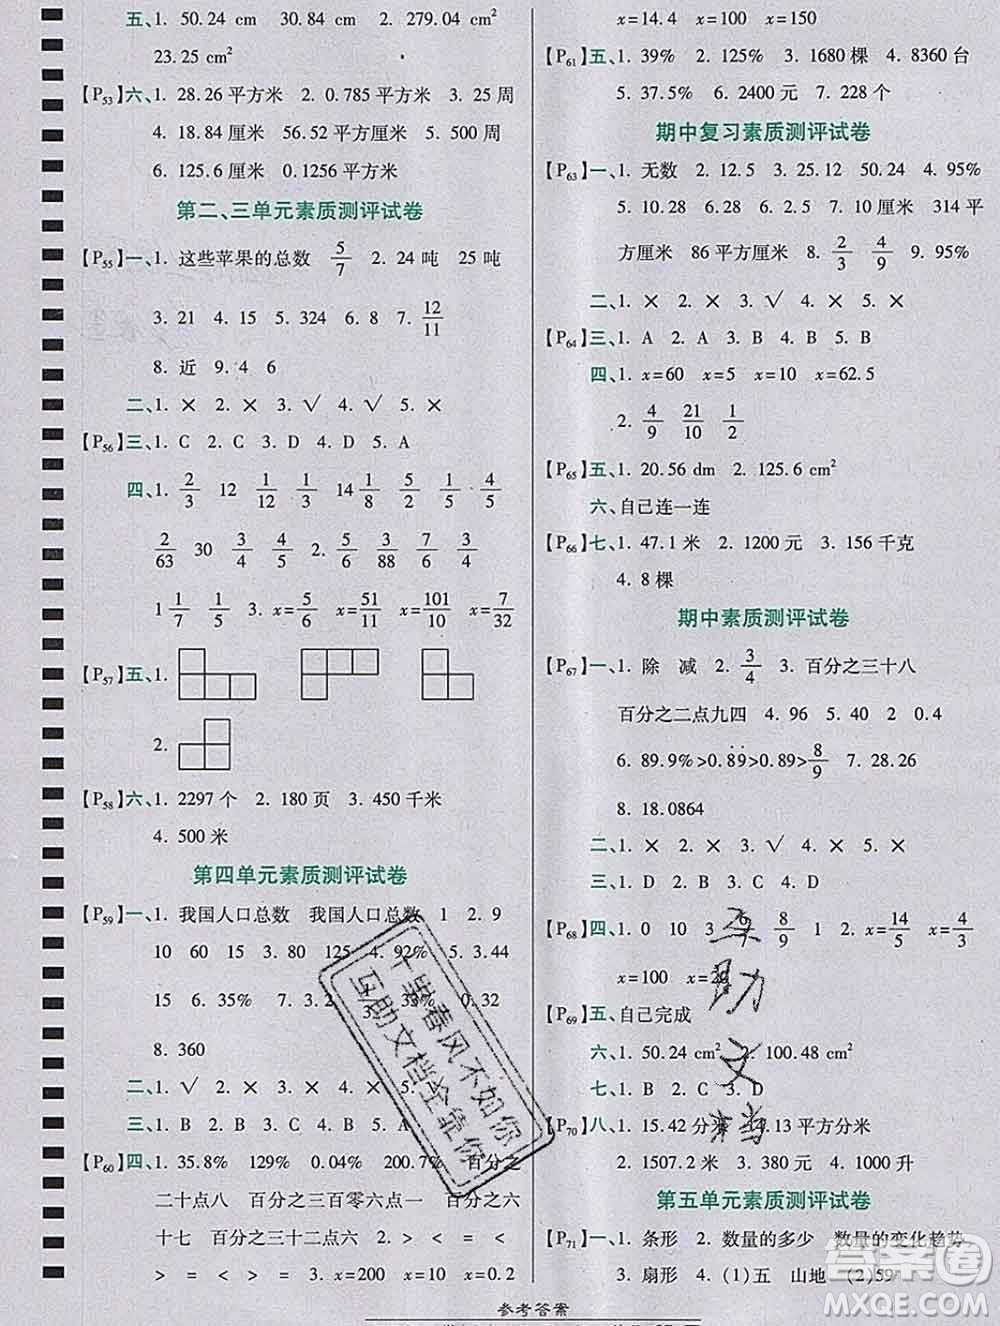 五、1. 50.24 cm 2. 279.04 cm²
23.25 cm²
【P53】六、1. 28.26 平方米 2. 0.785 平方米 3. 25 周
4. 18.84 厘米 56.52 平方厘米 5. 500 周
6. 125.6 厘米 0.1256 平方米
第二、三单元素质测评试卷
【P55】一、1. 这些苹果的总数 5/7 2. 24 吨 25 吨
3. 21 4. 15 5. 324 6. 8 7. 12/11
8. 近 9. 4 6
二、1. × 2. × 3. √ 4. √ 5. ×
【P56】三、1. C 2. C 3. D 4. D 5. A
四、1. 2/3 12 1/12 1/3 14 1/8 5/2 1/5 4/5
2/63 30 3/4 3/4 2. 5/4 3/88 7/4 5/9
1 1/7 1/5 3. x=5/6 x=51/11 x=101/10 x=7/6
【P57】五、1.
2.
【P58】六、1. 2297 个 2. 180 页 3. 450 千米
4. 500 米
第四单元素质测评试卷
【P59】一、1. 我国人口总数 我国人口总数 1 2. 9
10 60 15 3. 80 125 4. 92% 5. 3.4
15 6. 35% 7. 0.32 3. 0.32
8. 360
二、1. √ 2. × 3. × 4. × 5.
三、1. B 2. B 3. C 4. B 5.
【P60】四、1. 35.8% 129% 0.04% 200.7% 百分之
二十点八 百分之三百零六点一 百分之六
十七 百分之三十二点六 2. > < = <
> = < = > 3. x=200 x=10 x=0.2
x=14.4 x=100 x=150
【P61】五、1. 39% 2. 125% 3. 1680 棵 4. 8360 台
5. 37.5% 6. 2400 元 7. 228 个
期中复习素质测评试卷
【P63】一、1. 无数 2. 12.5 3. 50.24 4. 95%
5. 10.28 6. 6.28 7. 20 厘米 314 平
方厘米 86 平方厘米 8. 2/3 4/9 9. 9%
二、1. × 2. × 3. √ 4. × 5. ×
【P64】三、1. A 2. A 3. D 4. B 5. B
四、1. x=60 x=5 x=10 x=62.5
2. 4/9 21/10 1/2
【P65】五、1. 20.56 dm 2. 125.6 cm²
六、自己连一连
【P66】七、1. 47.1 米 2. 1200 元 3. 156 千克
4. 8 棵
期中素质测评试卷
【P67】一、1. 除 减 2. 3/4 3. 百分之三十八
百分之二点九四 4. 96 5. 40 2 0.4
6. 89.9%>0.8̇9̇>0.89>8/9 7. 28.26
8. 18.0864
二、1. × 2. × 3. √ 4. × 5. ×
三、1. D 2. B 3. C 4. B 5. D
【P68】四、1. 0 10 3 8/9 1 2. x=14/5 x=4/3
x=100
【P69】五、自己完成
六、1. 50.24 cm² 2. 100.48 cm²
七、1. B 2. C 3. D
【P70】八、1. 15.42 分米 4.13 平方分米
2. 1507.2 米 3. 380 元 4. 1000 升
第五单元素质测评试卷
【P71】一、1. 条形 2. 数量的多少 数量的变化趋势
3. 扇形 4. (1)五 山地 (2)59
参考答案
千里春风不如你
互助文档全靠你
互助文档
答案圈
MXQE.COM